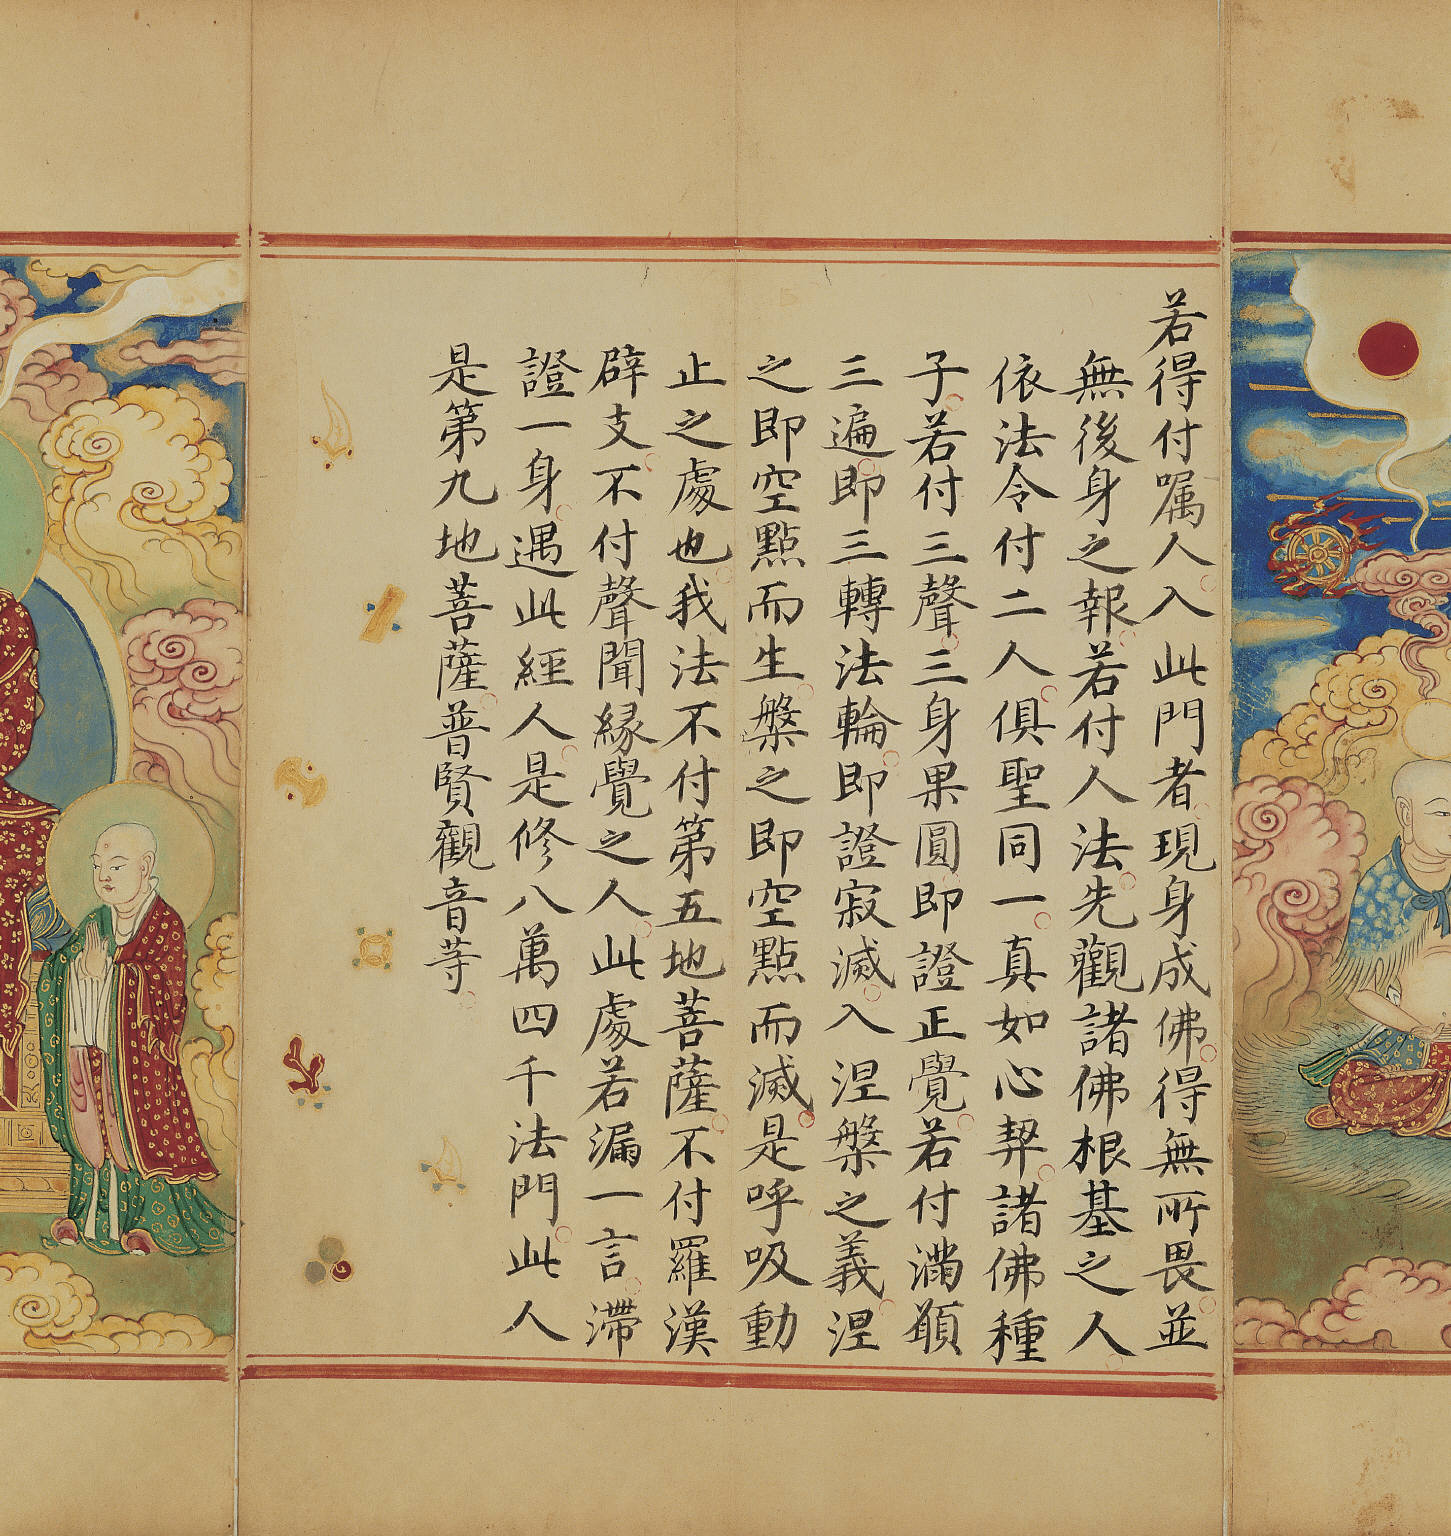 若得付嘱人入此門者現身成佛得無所畏並
無後身之報若付人法先觀諸佛根基之人
依法令付二人俱聖同一真如心契諸佛種
子若付三聲三身果圓即證正覺若付滿願
三遍即三轉法輪即證寂滅入涅槃之義涅
之即空點而生槃之即空點而滅是呼吸動
止之處也我法不付第五地菩薩不付羅漢
辟支不付聲聞緣覺之人此處若漏一言滯
證一身遇此經人是修八萬四千法門此人
是第九地菩薩普賢觀音等